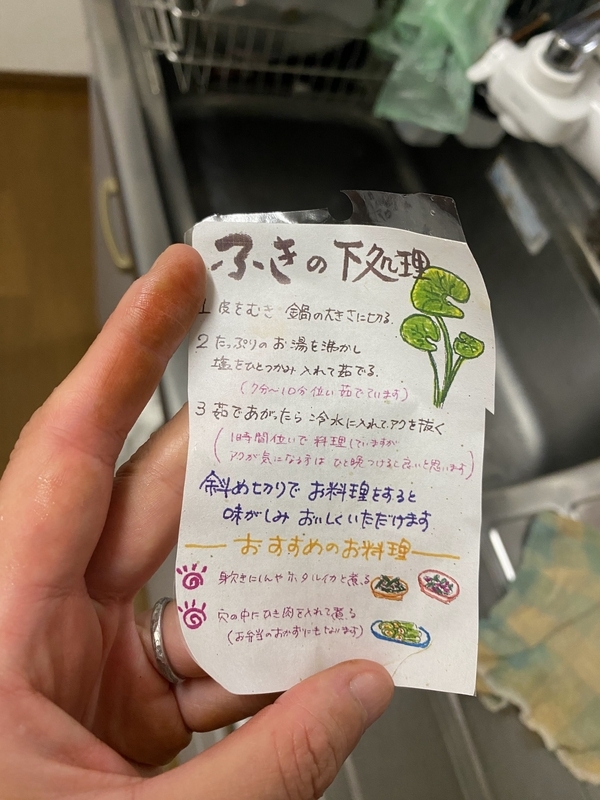 ふきの下処理
1 皮をむき 鍋の大きさに切る
2 たっぷりのお湯を沸かし
塩をひとつかみ入れて茹でる
(7分〜10分位い茹でています)
3 茹であがったら冷水に入れてアクを抜く
(1時間位いで料理していますが
アクが気になる方はひと晩つけると良いと思います)
斜め切りでお料理をすると
味がしみおいしくいただけます
おすすめのお料理
身欠きにしんやホタルイカと煮る
穴の中にひき肉を入れて煮る
(お弁当のおかずにもなります)